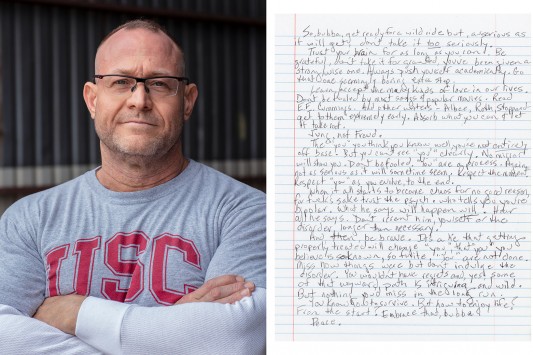 USC
So, bubba, get ready for a wild ride but, as serious as
it will get, don't take it too seriously.
Trust your brain for as long as you can. Be
grateful, don't take it for granted. You've been given a
strong, wise one. Always push yourself academically. Go
that one seemingly boring extra step.
Learn, accept the many kinds of love in our lives.
Don't be fooled by most songs & popular movies. Read
E.E. Cummings. And other writers - Albee, Roth, Stoppard
get to them extremely early. Absorb what you can & let
it take root.
Jung, not Freud.
The "you" you think you know well, you're not entirely
off base. But you can't see "you" clearly. No mirror
will show you. Don't be fooled. You are a process, though
not as serious as it will sometime seem. Respect the moment.
Respect "you" as you evolve, to the end.
When it all starts to become chaos for no good reason,
for fuck's sake trust the psych. who tells you you're
bipolar. What he says will happen will. Hear
all he says. Don't resent him, yourself or the
disorder, longer than necessary.
And then, be brave. It's a lie that getting
properly treated will change the "you" that you
believe is so known, so futile. "You" are not done.
Miss how things were but don't indulge the
disorder. You won't have regrets and, yes, some
of that wayward path is intriguing and wild.
But nothing you'd miss in the long run.
You know how to survive. But how to enjoy life?
From the start. Embrace that, bubba.
Peace.